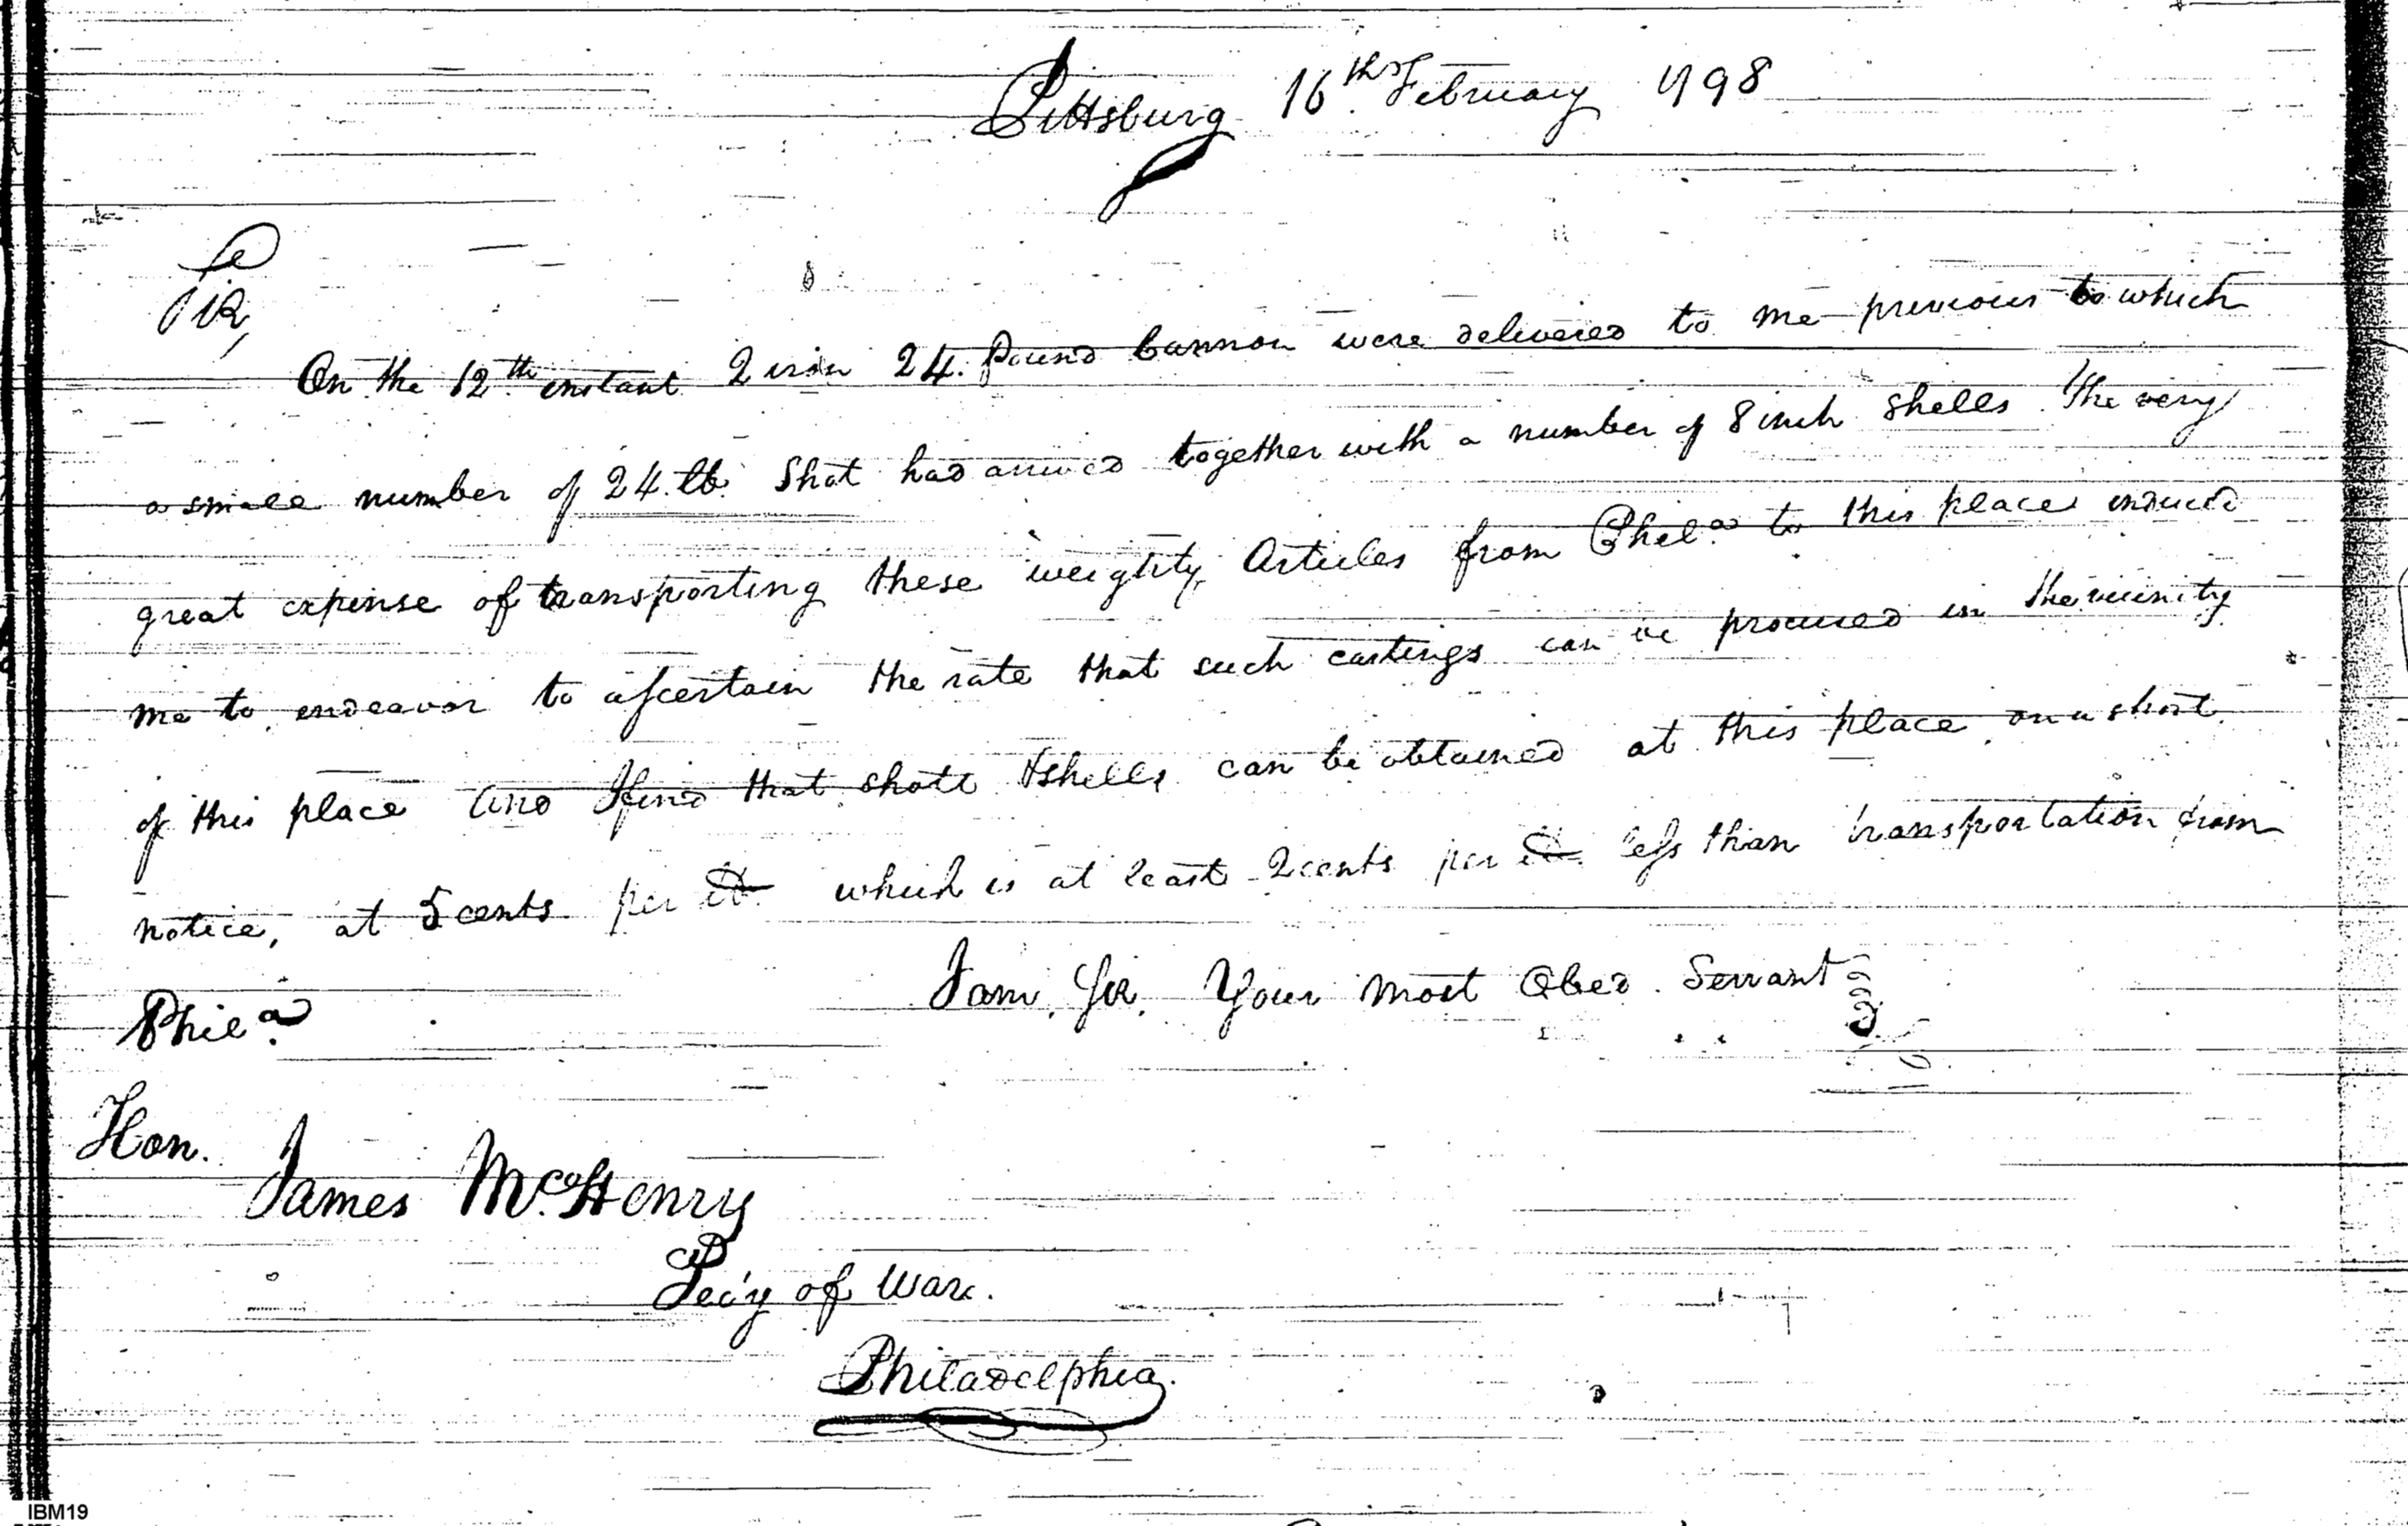 Pittsburg 16th February 1798
Sir,
On the 12th instant 2 iron 24. Pound Cannon were delivered to me previous to which
a small number of 24. lb. Shot had arrived together with a number of 8 inch shells The very
great expense of transporting these weighty Articles from Phila. to this place induced
me to endeavor to ascertain the rate that such castings can be procured in the vicinity
of this place and I find that shott & shells can be obtained at this place on a short
notice, at 5 cents per lb. which is at least 2 cents per lb. less than transportation from
Phila.
I am, Sir, Your most Obed. Servant
Hon.
James McHenry
Sec'y of War.
Philadelphia.
IBM19